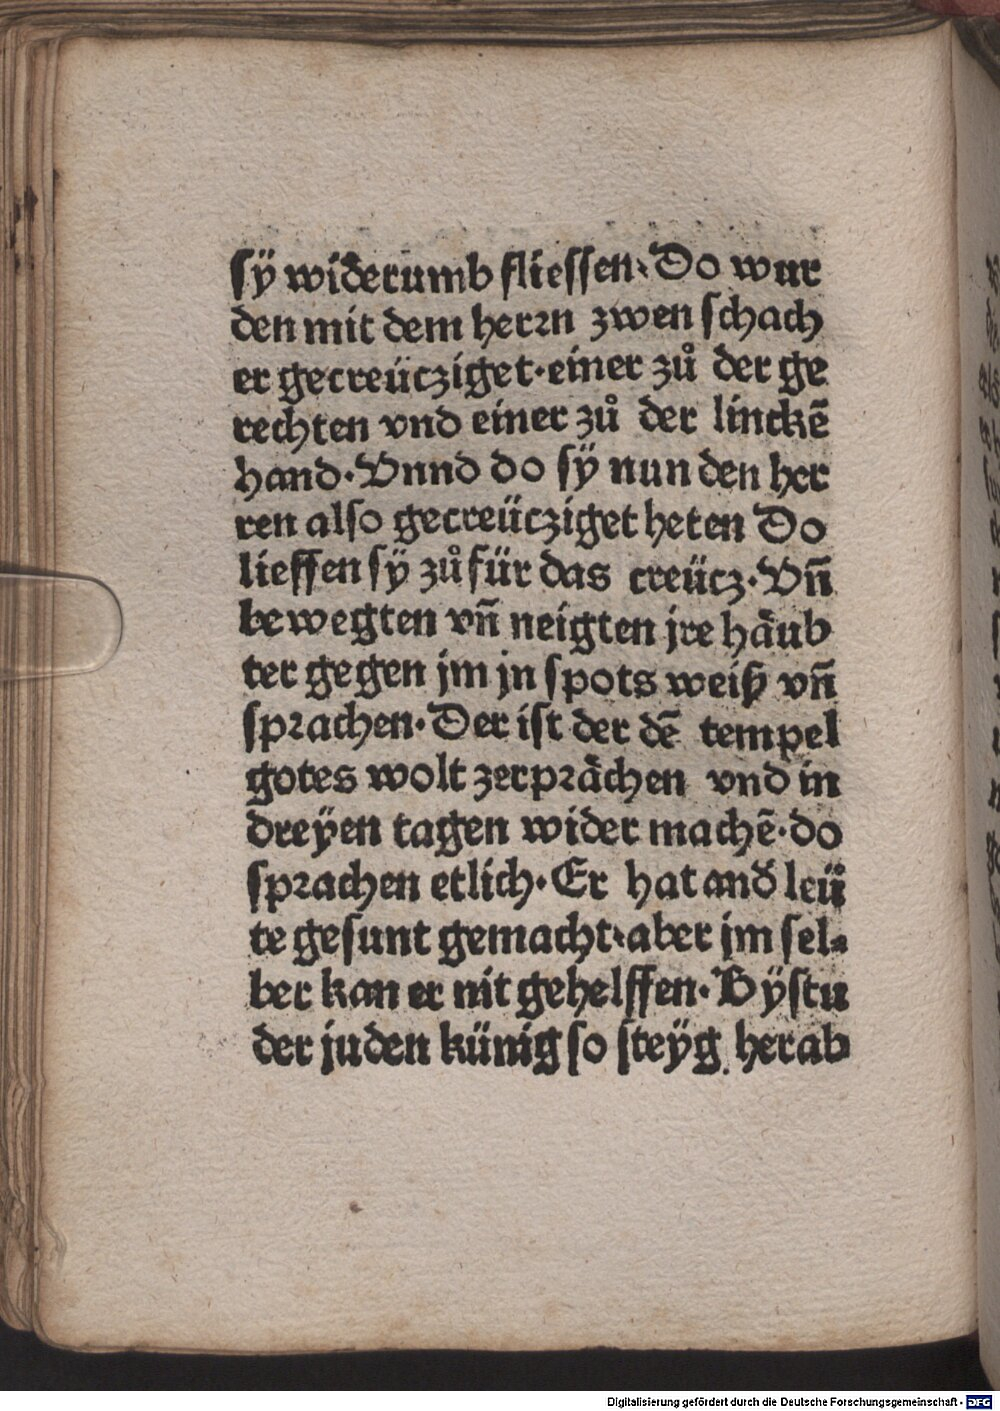 sÿ widerumb fliessen· Do wur
den mit dem herrn zwen schach
er gecreücziget·einer zů der ge
rechten vnd einer zů der linckē
hand· Vnnd do sÿ nun den her
ren also gecreücziget heten Do
lieffen sÿ zů für das creücz·Vn̄
bewegten vn̄ neigten jre häub
ter gegen jm jn spots weiß vn̄
sprachen·Der ist der dē tempel
gotes wolt zerprächen vnd in
dreÿen tagen wider machē·do
sprachen etlich·Er hat and̕ leü
te gesunt gemacht·aber jm sel⸗
ber kan er nit gehelffen·Bÿstu
der juden künig so steÿg herab
Digitalisierung gefördert durch die Deutsche Forschungsgemeinschaft - DFG